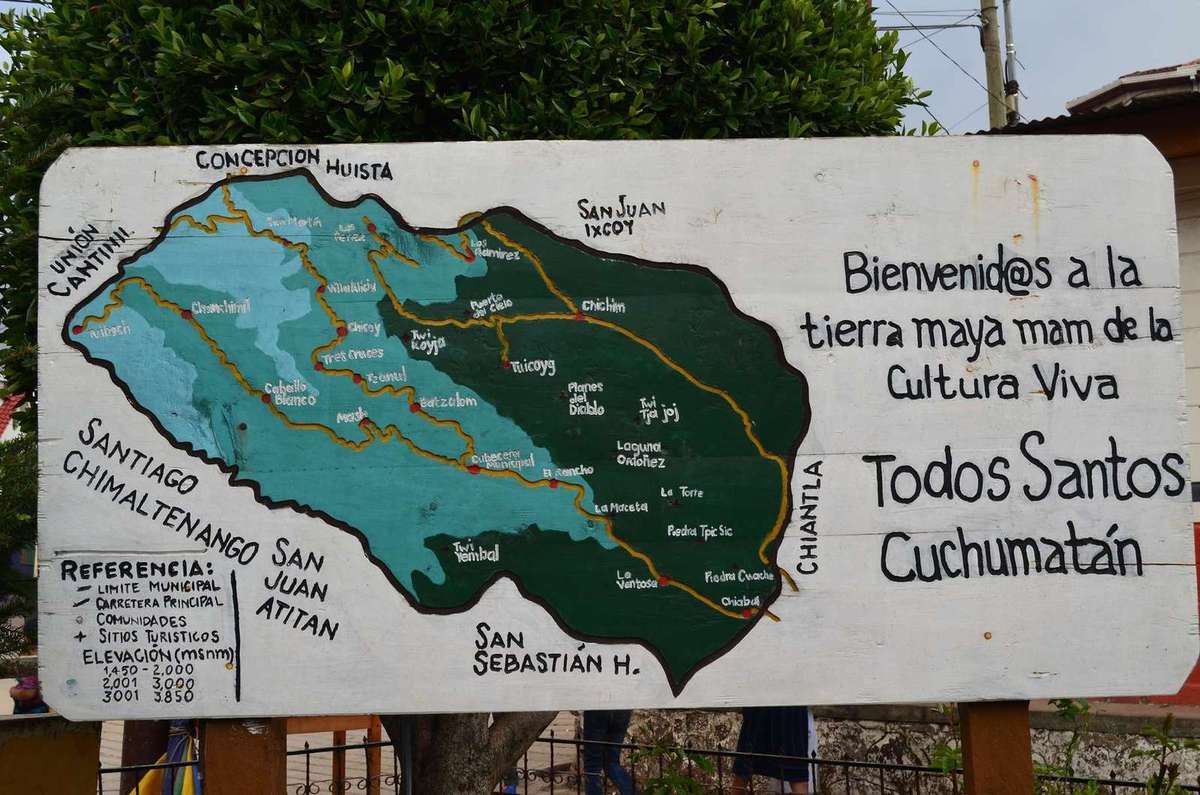 CONCEPCIÓN HUISTA
SAN JUAN
IXCOY
UNIÓN
CANTINIL
Bienvenid@s a la
tierra maya mam de la
Cultura Viva
Todos Santos
Cuchumatán
San Martín
Los
Ramirez
Chemchimil
Puerta
del Cielo
Chichim
Chicoy
Twi
Koyja
Tres Cruces
Tuicoyg
Tzunul
Caballo
Blanco
Planes
del
Diablo
Batzalom
Twi
Tja joj
Mash
Laguna
Ordoñez
Cabecera
Municipal
El Rancho
La Torre
La Maceta
Piedra Tpic Sic
Twi
Yembal
La
Ventosa
Piedra Cuache
Chiabal
CHIANTLA
SANTIAGO
CHIMALTENANGO
SAN
JUAN
ATITAN
SAN
SEBASTIÁN H.
REFERENCIA:
LIMITE MUNICIPAL
CARRETERA PRINCIPAL
COMUNIDADES
SITIOS TURISTICOS
ELEVACIÓN (msnm)
1,450 - 2,000
2,001 3,000
3,001 3,850